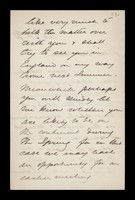 like very much to
talk the matter over
with you & shall
try to see you in
England in any way
home next Summer.
Meanwhile perhaps
you will kindly let
me know whether you
are likely to be on
the continent during
the Spring for in this
case we may have
an opportunity for an
earlier meeting